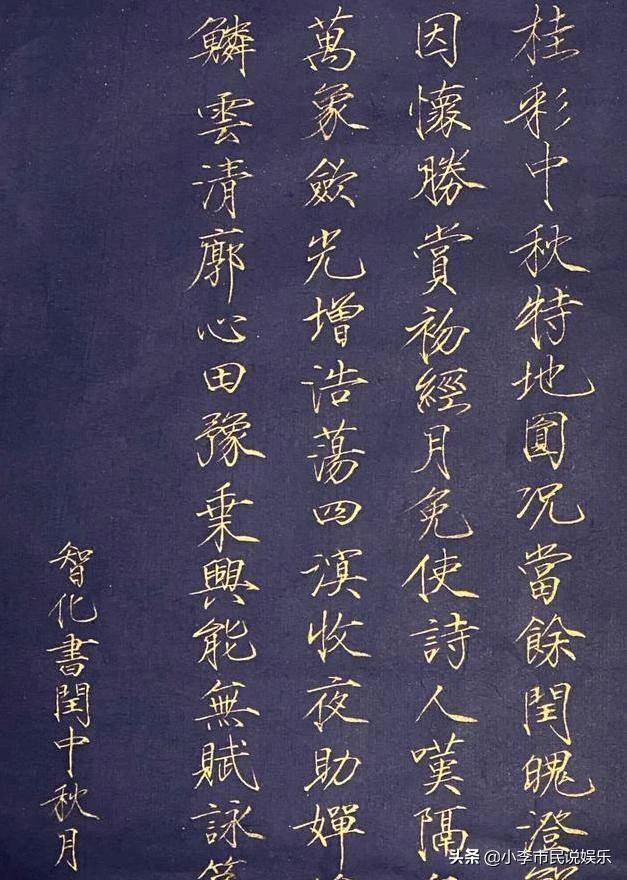 桂彩中秋特地圓况當餘閏魄澄
因懷勝賞初經月免使詩人嘆隔
萬象斂光增浩蕩四溟收夜助嬋
鱗雲清廓心田豫乗興能無賦詠
智化書閏中秋月
头条 @小李市民说娱乐